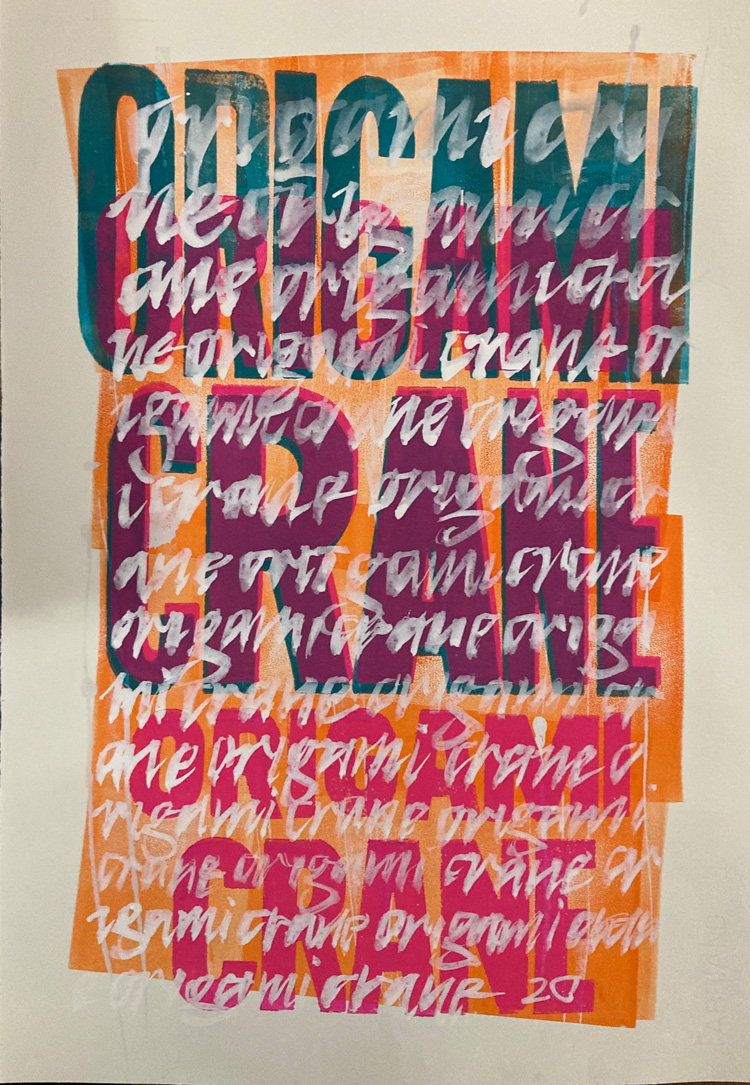 ORIGAMI
ORIGAMI
CRANE
ORIGAMI
CRANE
origami cra
ne origami cr
ane origami cra
ne origami crane or
igami cra ne origam
i crane origami cr
ane origami crane
origami crane origa
mi crane origami cr
ane origami crane o
rigami crane origami
crane origami crane or
igami crane origami
origami crane 20
FABRIANO